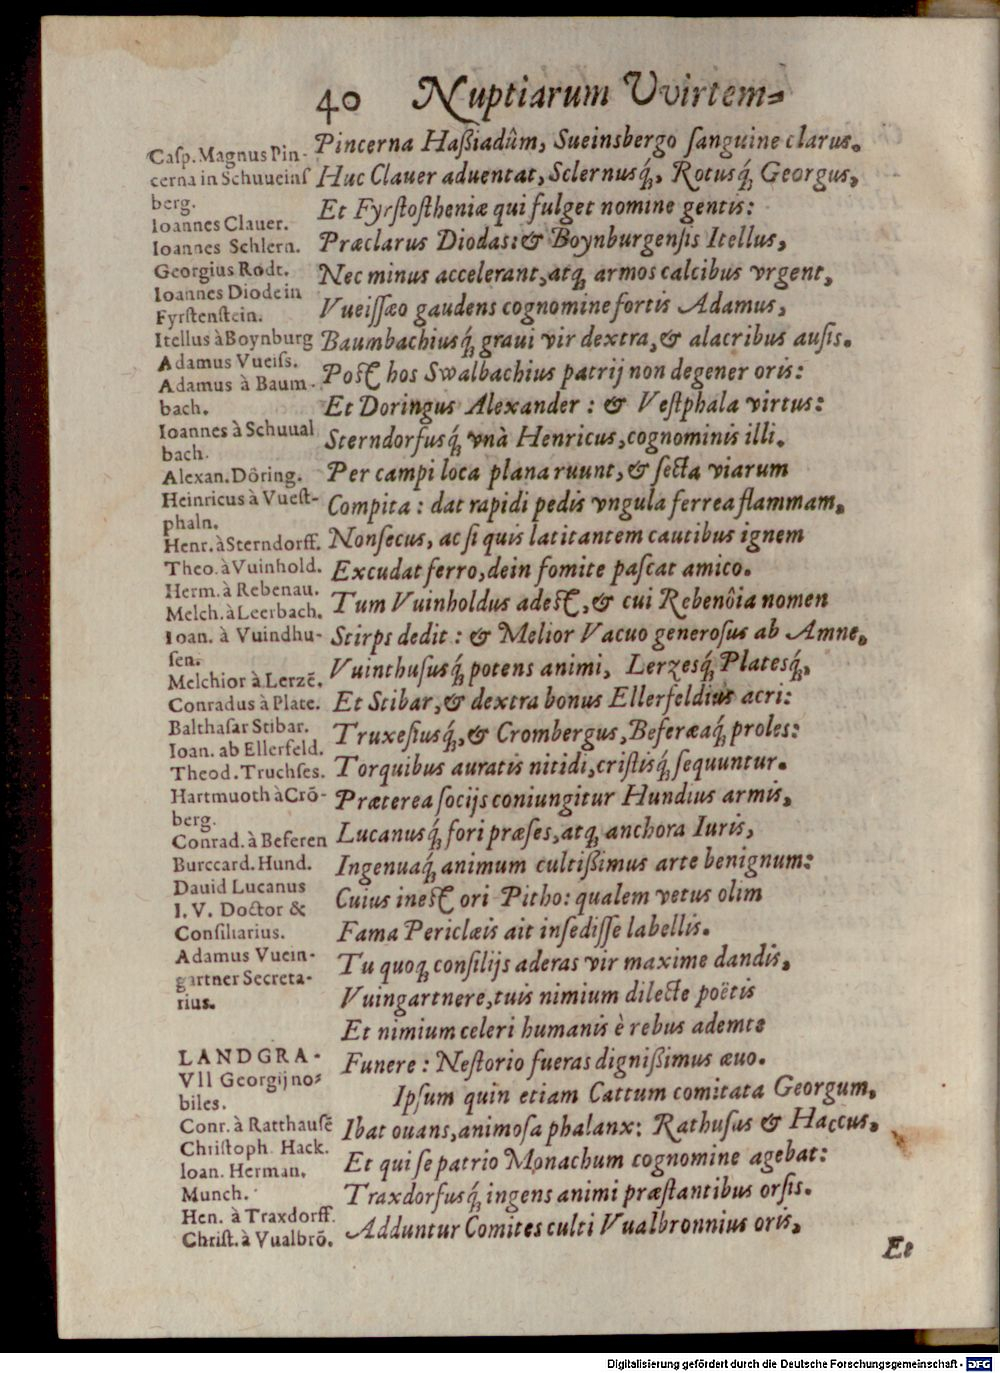 40 Nuptiarum Vvirtem⸗
Casp. Magnus Pin-
cerna in Schuueinſ
berg.
Ioannes Clauer.
Ioannes Schlern.
Georgius Rodt.
Ioannes Diode in
Fyrſtenſtein.
Itellus à Boynburg
Adamus Vueiſs.
Adamus à Baum-
bach.
Ioannes à Schuual
bach.
Alexan. Dôring.
Heinricus à Vueſt-
phaln.
Henr. à Sterndorff.
Theo. à Vuinhold.
Herm. à Rebenau.
Melch. à Leerbach.
Ioan. à Vuindhu-
ſen.
Melchior à Lerzē.
Conradus à Plate.
Balthaſar Stibar.
Ioan. ab Ellerfeld.
Theod. Truchſes.
Hartmuoth à Crō-
berg.
Conrad. à Beferen
Burccard. Hund.
Dauid Lucanus
I. V. Doctor &
Conſiliarius.
Adamus Vuein-
gartner Secreta-
rius.
LANDGRA-
VII Georgij no⸗
biles.
Conr. à Ratthauſē
Chriſtoph. Hack.
Ioan. Herman.
Munch.
Hen. à Traxdorff.
Chriſt. à Vualbrō.
Pincerna Haßiadûm, Sueinsbergo ſanguine clarus.
Huc Clauer aduentat, Sclernusq́, Rotusq́, Georgus,
Et Fyrſtoſtheniæ qui fulget nomine gentis:
Præclarus Diodas: & Boynburgenſis Itellus,
Nec minus accelerant, atq, armos calcibus vrgent,
Vueiſſæo gaudens cognomine fortis Adamus,
Baumbachiusq́, graui vir dextra, & alacribus auſis.
Poſt hos Swalbachius patrij non degener oris:
Et Doringus Alexander: & Veſtphala virtus:
Sterndorfusq́, vnà Henricus, cognominis illi.
Per campi loca plana ruunt, & ſecta viarum
Compita: dat rapidi pedis vngula ferrea flammam,
Non ſecus, ac ſi quis latitantem cautibus ignem
Excudat ferro, dein fomite paſcat amico.
Tum Vuinholdus adeſt, & cui Rebenôia nomen
Stirps dedit: & Melior Vacuo generoſus ab Amne,
Vuinthuſusq́, potens animi, Lerzesq́, Platesq́,
Et Stibar, & dextra bonus Ellerfeldius acri:
Truxeſiusq́, & Crombergus, Beferæaq́, proles:
Torquibus auratis nitidi, criſtisq́, ſequuntur.
Præterea ſocijs coniungitur Hundius armis,
Lucanusq́, fori præſes, atq, anchora Iuris,
Ingenuaq́, animum cultißimus arte benignum:
Cuius ineſt ori Pitho: qualem vetus olim
Fama Periclæis ait inſediſſe labellis.
Tu quoq, conſilijs aderas vir maxime dandis,
Vuingartnere, tuis nimium dilecte poëtis
Et nimium celeri humanis è rebus ademte
Funere: Neſtorio fueras dignißimus æuo.
Ipſum quin etiam Cattum comitata Georgum,
Ibat ouans, animoſa phalanx: Rathuſas & Haccus,
Et qui ſe patrio Monachum cognomine agebat:
Traxdorfusq́, ingens animi præſtantibus orſis.
Adduntur Comites culti Vualbronnius oris,
Et
Digitalisierung gefördert durch die Deutsche Forschungsgemeinschaft - DFG